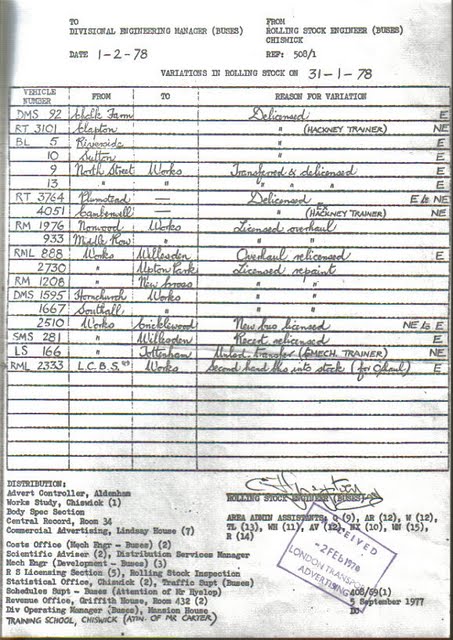 TO FROM
DIVISIONAL ENGINEERING MANAGER (BUSES) ROLLING STOCK ENGINEER (BUSES)
CHISWICK
DATE 1-2-78 REF: 508/1
VARIATIONS IN ROLLING STOCK ON 31-1-78
VEHICLE NUMBER FROM TO REASON FOR VARIATION
DMS 92 Chalk Farm Delicensed E
RT 3101 Clapton " (HACKNEY TRAINER) NE
BL 5 Riverside " E
10 Sutton " E
9 North Street Works Transferred & delicensed E
13 " " " " " E
RT 3764 Plumstead — Delicensed E to NE
4051 Camberwell — " (EX HACKNEY TRAINER) NE
RM 1976 Norwood Works Licensed overhaul
933 Middle Row " " "
RML 888 Works Willesden Overhaul relicensed E
2730 " Upton Park Licensed repaint
RM 1208 " New Cross " "
DMS 1595 Hornchurch Works " "
1667 Southall " " "
2510 Works Cricklewood New bus licensed NE to E
SMS 281 " Willesden Recert. relicensed E
LS 166 " Tottenham Unlicd. transfer (EMECH. TRAINER) NE
RML 2333 L.C.B.S. Works Second hand bus into stock (for O/haul) E
DISTRIBUTION:
Advert Controller, Aldenham
Works Study, Chiswick (1)
Body Spec Section
Central Record, Room 34
Commercial Advertising, Lindsay House (7)
Costs Office (Mech Engr - Buses) (2)
Scientific Adviser (2), Distribution Services Manager
Mech Engr (Development - Buses) (3)
R S Licensing Section (5), Rolling Stock Inspection
Statistical Office, Chiswick (2), Traffic Supt (Buses)
Schedules Supt - Buses (Attention of Mr Hyslop)
Revenue Office, Griffith House, Room 432 (2)
Div Operating Manager (Buses), Mansion House
TRAINING SCHOOL, CHISWICK (ATTN. OF MR CARTER)
ROLLING STOCK ENGINEER (BUSES)
AREA ADMIN ASSISTANTS, Q (9), AR (12), W (12),
TL (13), WH (11), AV (12), NX (10), WN (15),
R (14)
RECEIVED
2 FEB 1978
LONDON TRANSPORT
ADVERTISING
408/69(1)
5 September 1977